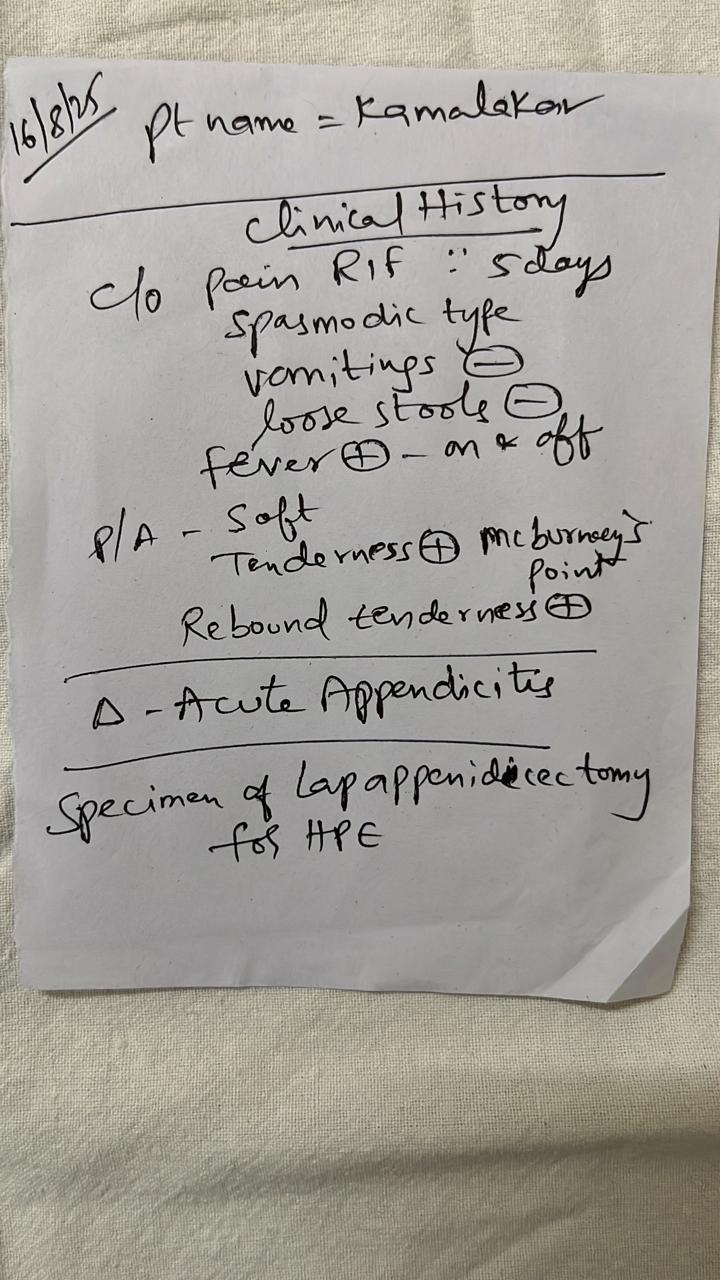 16/8/25
Pt name = Kamalakar
Clinical History
c/o pain RIF :: 5 days
Spasmodic type
vomitings ⊖
loose stools ⊖
fever ⊕ - on & off
P/A - Soft
Tenderness ⊕ mcburney's
point
Rebound tenderness ⊕
Δ - Acute Appendicitis
Specimen of Lap appenidicectomy
for HPE